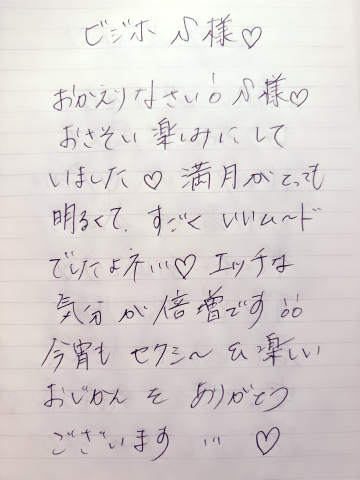 ビジホ N様♡
おかえりなさい!! N様♡
おさそい 楽しみにして
いました♡ 満月がとっても
明るくて、すごく いいムード
でしたよネ…♡ エッチな
気分が倍増です!!
今宵も セクシー&楽しい
おじかんを ありがとう
ございます … ♡